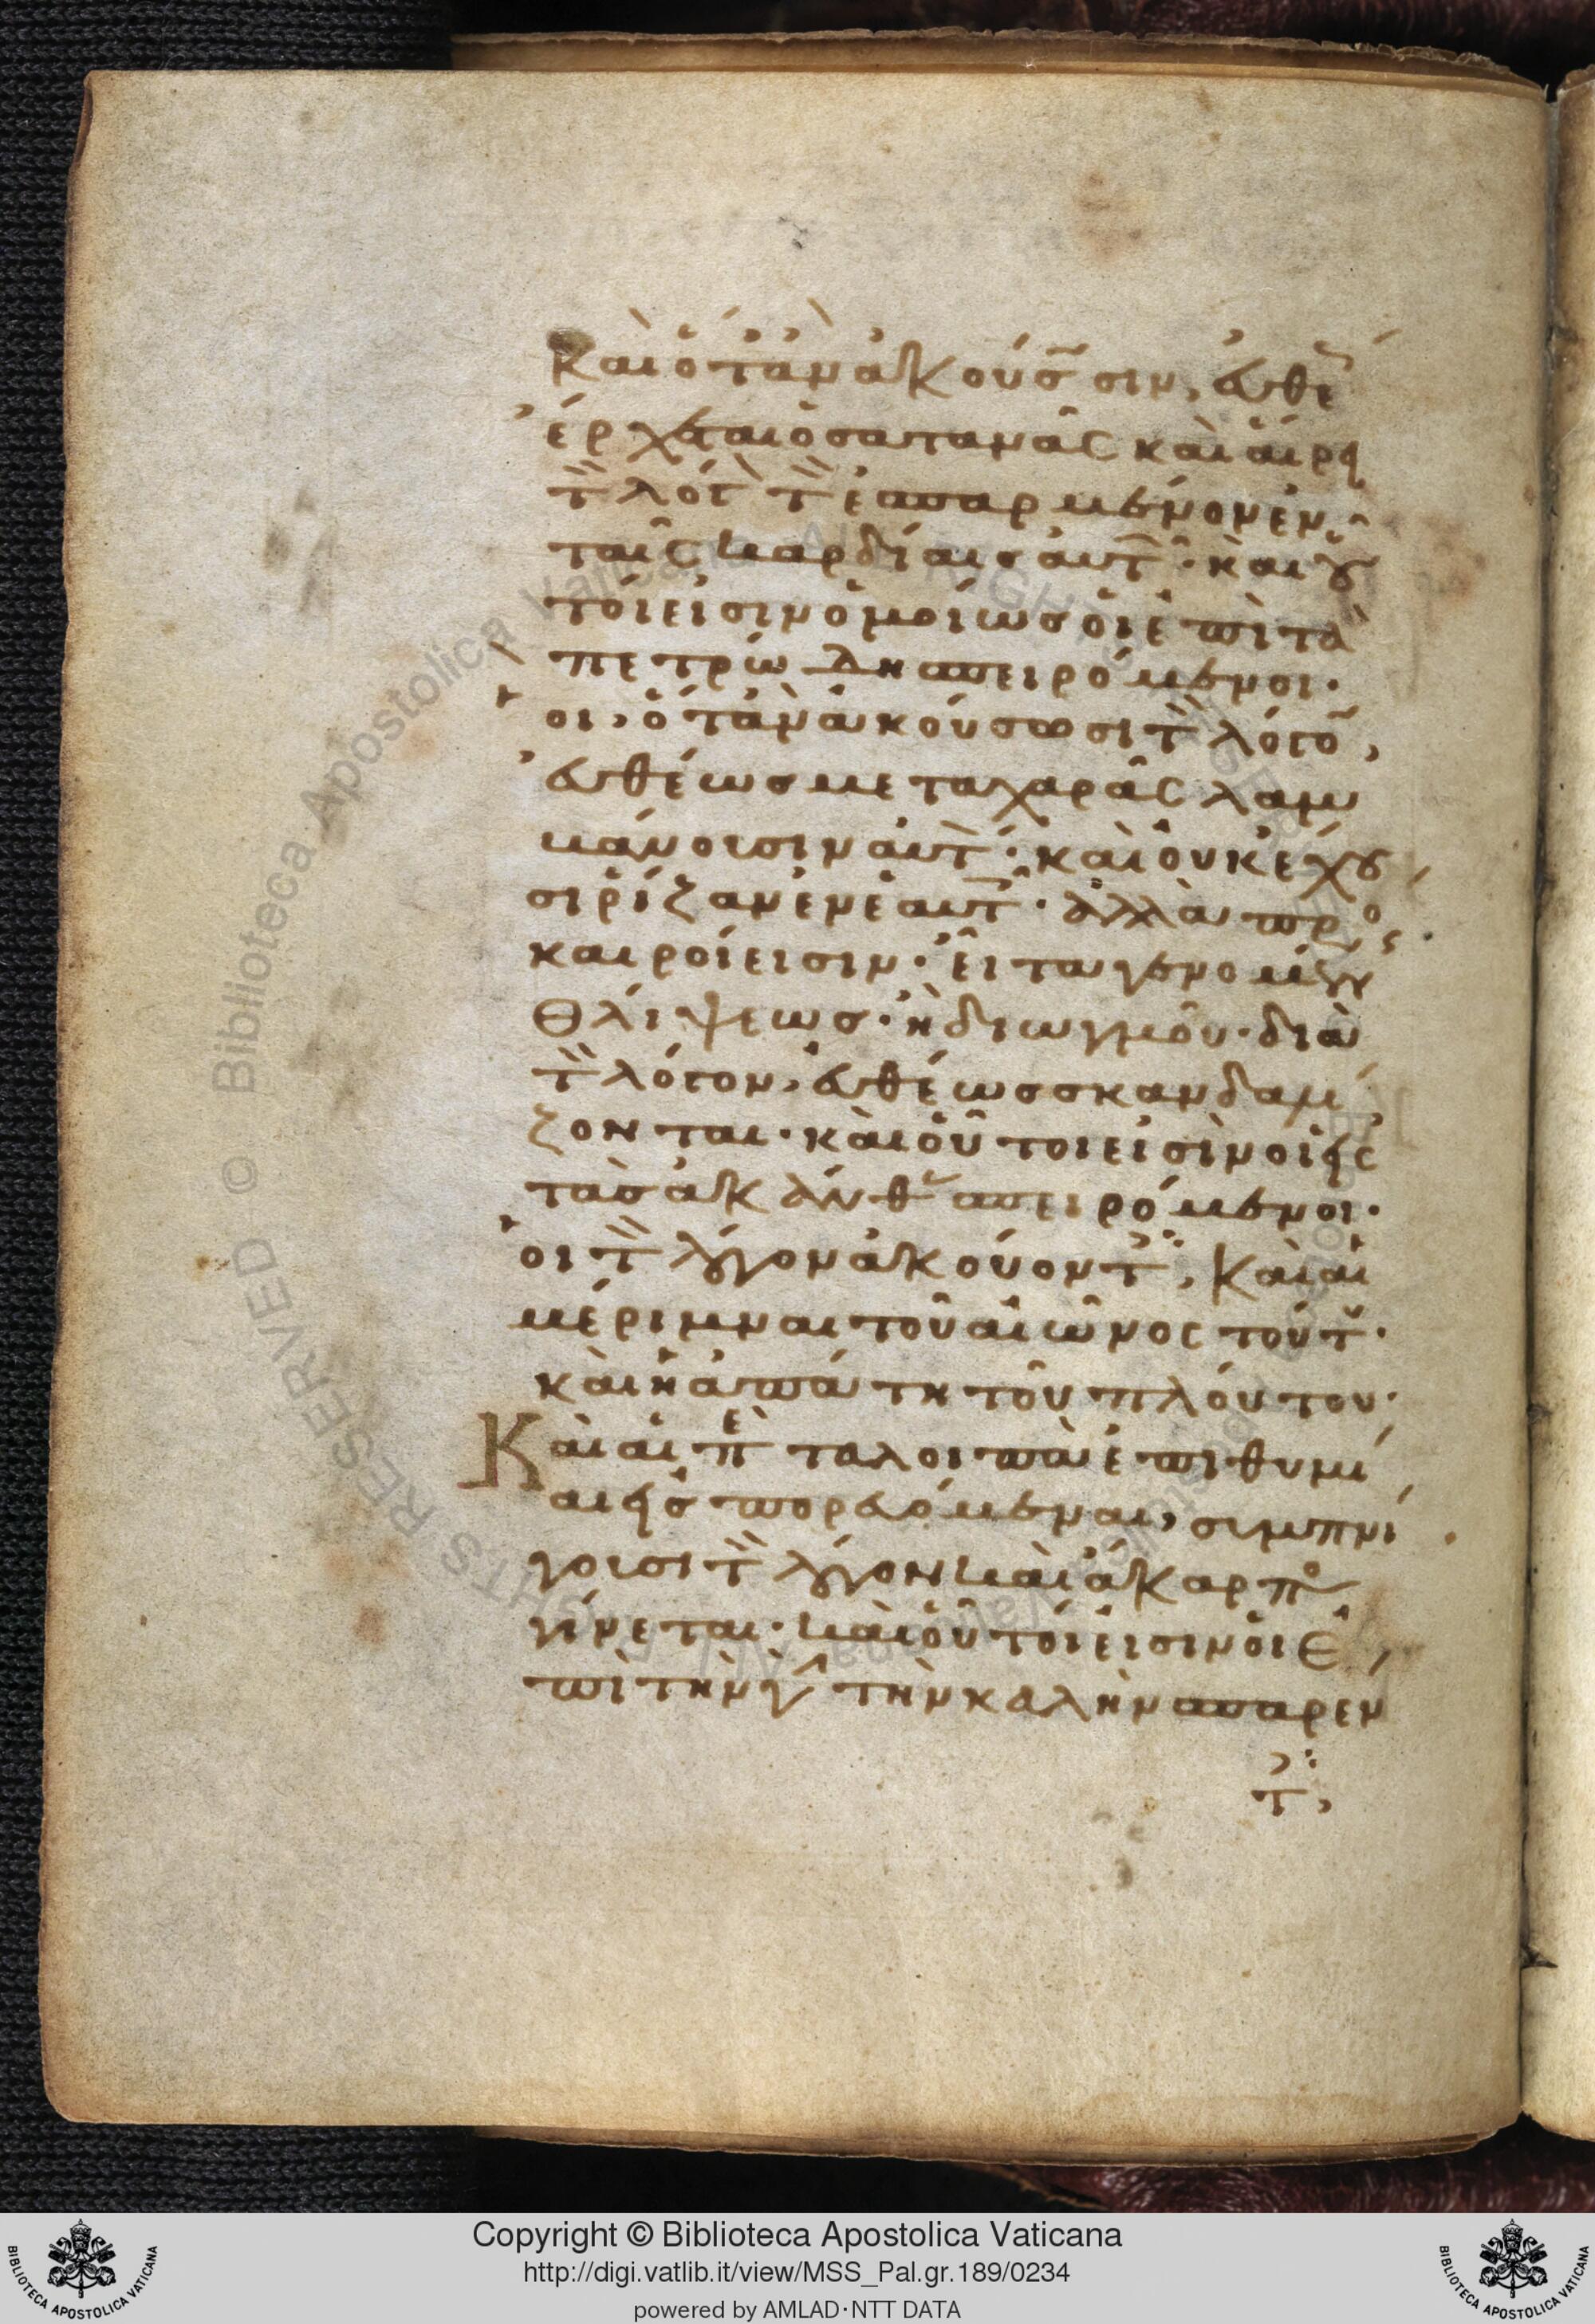 καὶ ὅταν ἀκούσωσιν, εὐθέως
ἔρχεται ὁ σατανᾶς καὶ αἴρει
τὸν λόγον τὸν ἐσπαρμένον ἐν
ταῖς καρδίαις αὐτῶν· καὶ οὗ
τοί εἰσιν ὁμοίως οἱ ἐπὶ τὰ
πετρώδη σπειρόμενοι·
οἳ, ὅταν ἀκούσωσι τὸν λόγον,
εὐθέως μετα χαρᾶς λαμ
βάνουσιν αὐτόν· καὶ οὐκ ἔχου
σι ῥίζαν ἐν ἑαυτοῖς· ἀλλὰ πρόσ
καιροί εισιν· εἶτα γενομένης
θλίψεως· ἢ διωγμοῦ· διὰ
τὸν λόγον, εὐθέως σκανδαλί
ζονται· καὶ οὗτοι εἰσὶν οἱ εἰς
τὰς ἀκάνθας σπειρόμενοι·
οἱ τὸν λόγον ἀκούοντες, καὶ αἱ
μέριμναι τοῦ αἰῶνος τούτου·
καὶ ἡ ἀπάτη τοῦ πλούτου·
Καὶ αἱ περὶ τα λοιπὰ ἐπιθυμί
αι εἰσπορευόμεναι, συμπνί
γουσι τὸν λόγον καὶ ἄκαρπος
γίνεται· καὶ οὗτοί εἰσιν οἱ ἐ
πὶ τὴν γῆν τὴν καλὴν σπαρέν
τες,
Copyright © Biblioteca Apostolica Vaticana
http://digi.vatlib.it/view/MSS_Pal.gr.189/0234
powered by AMLAD·NTT DATA